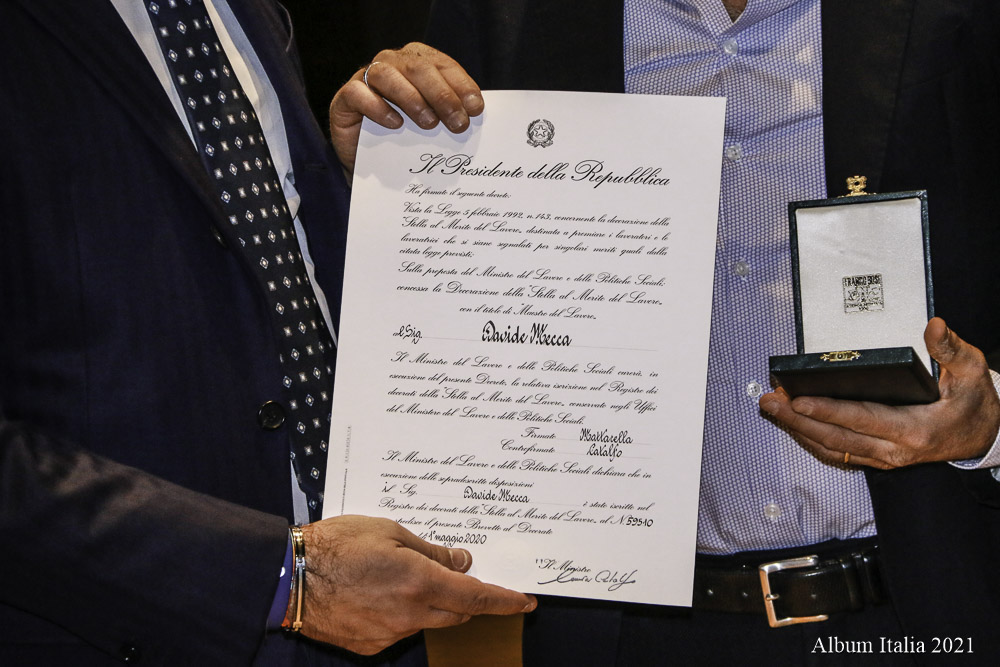 Il Presidente della Repubblica
Ha firmato il seguente decreto:
Vista la Legge 5 febbraio 1992, n. 143, concernente la decorazione della
"Stella al Merito del Lavoro", destinata a premiare i lavoratori e le
lavoratrici che si siano segnalati per singolari meriti quali dalla
citata legge previsti;
Sulla proposta del Ministro del Lavoro e delle Politiche Sociali;
concessa la Decorazione della "Stella al Merito del Lavoro",
con il titolo di "Maestro del Lavoro",
al Sig. Davide Mecca
Il Ministro del Lavoro e delle Politiche Sociali curerà, in
esecuzione del presente Decreto, la relativa iscrizione nel Registro dei
decorati della "Stella al Merito del Lavoro", conservato negli Uffici
del Ministero del Lavoro e delle Politiche Sociali.
Firmato Mattarella
Controfirmato Catalfo
Il Ministro del Lavoro e delle Politiche Sociali dichiara che in
esecuzione delle sopradescritte disposizioni
il Sig. Davide Mecca è stato iscritto nel
Registro dei decorati della "Stella al Merito del Lavoro", al N. 59510
il presente Brevetto al Decorato
1° maggio 2020
Il Ministro
Album Italia 2021